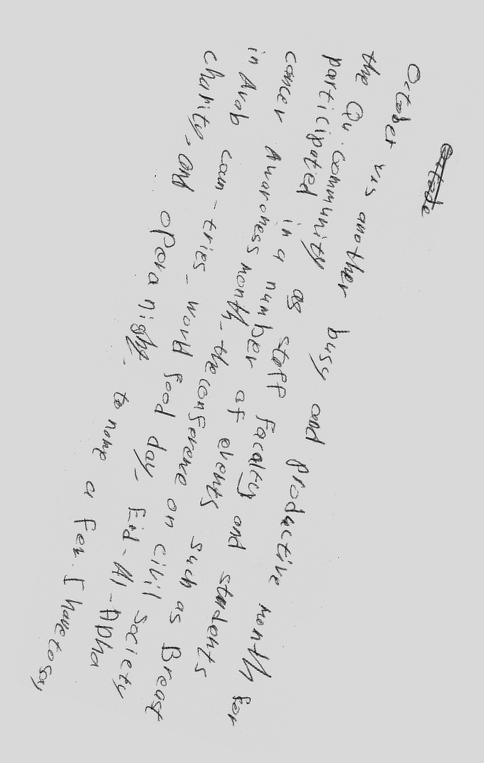 October vis another busy and productive month for
the Qu. Community as staff faculty and students
participated in a number of events such as Breast
cancer Awareness month - the conference on civil society
in Arab coun-tries - world food day - Eid-Al-Adha
charity, and opera night. to name a few. I have to say